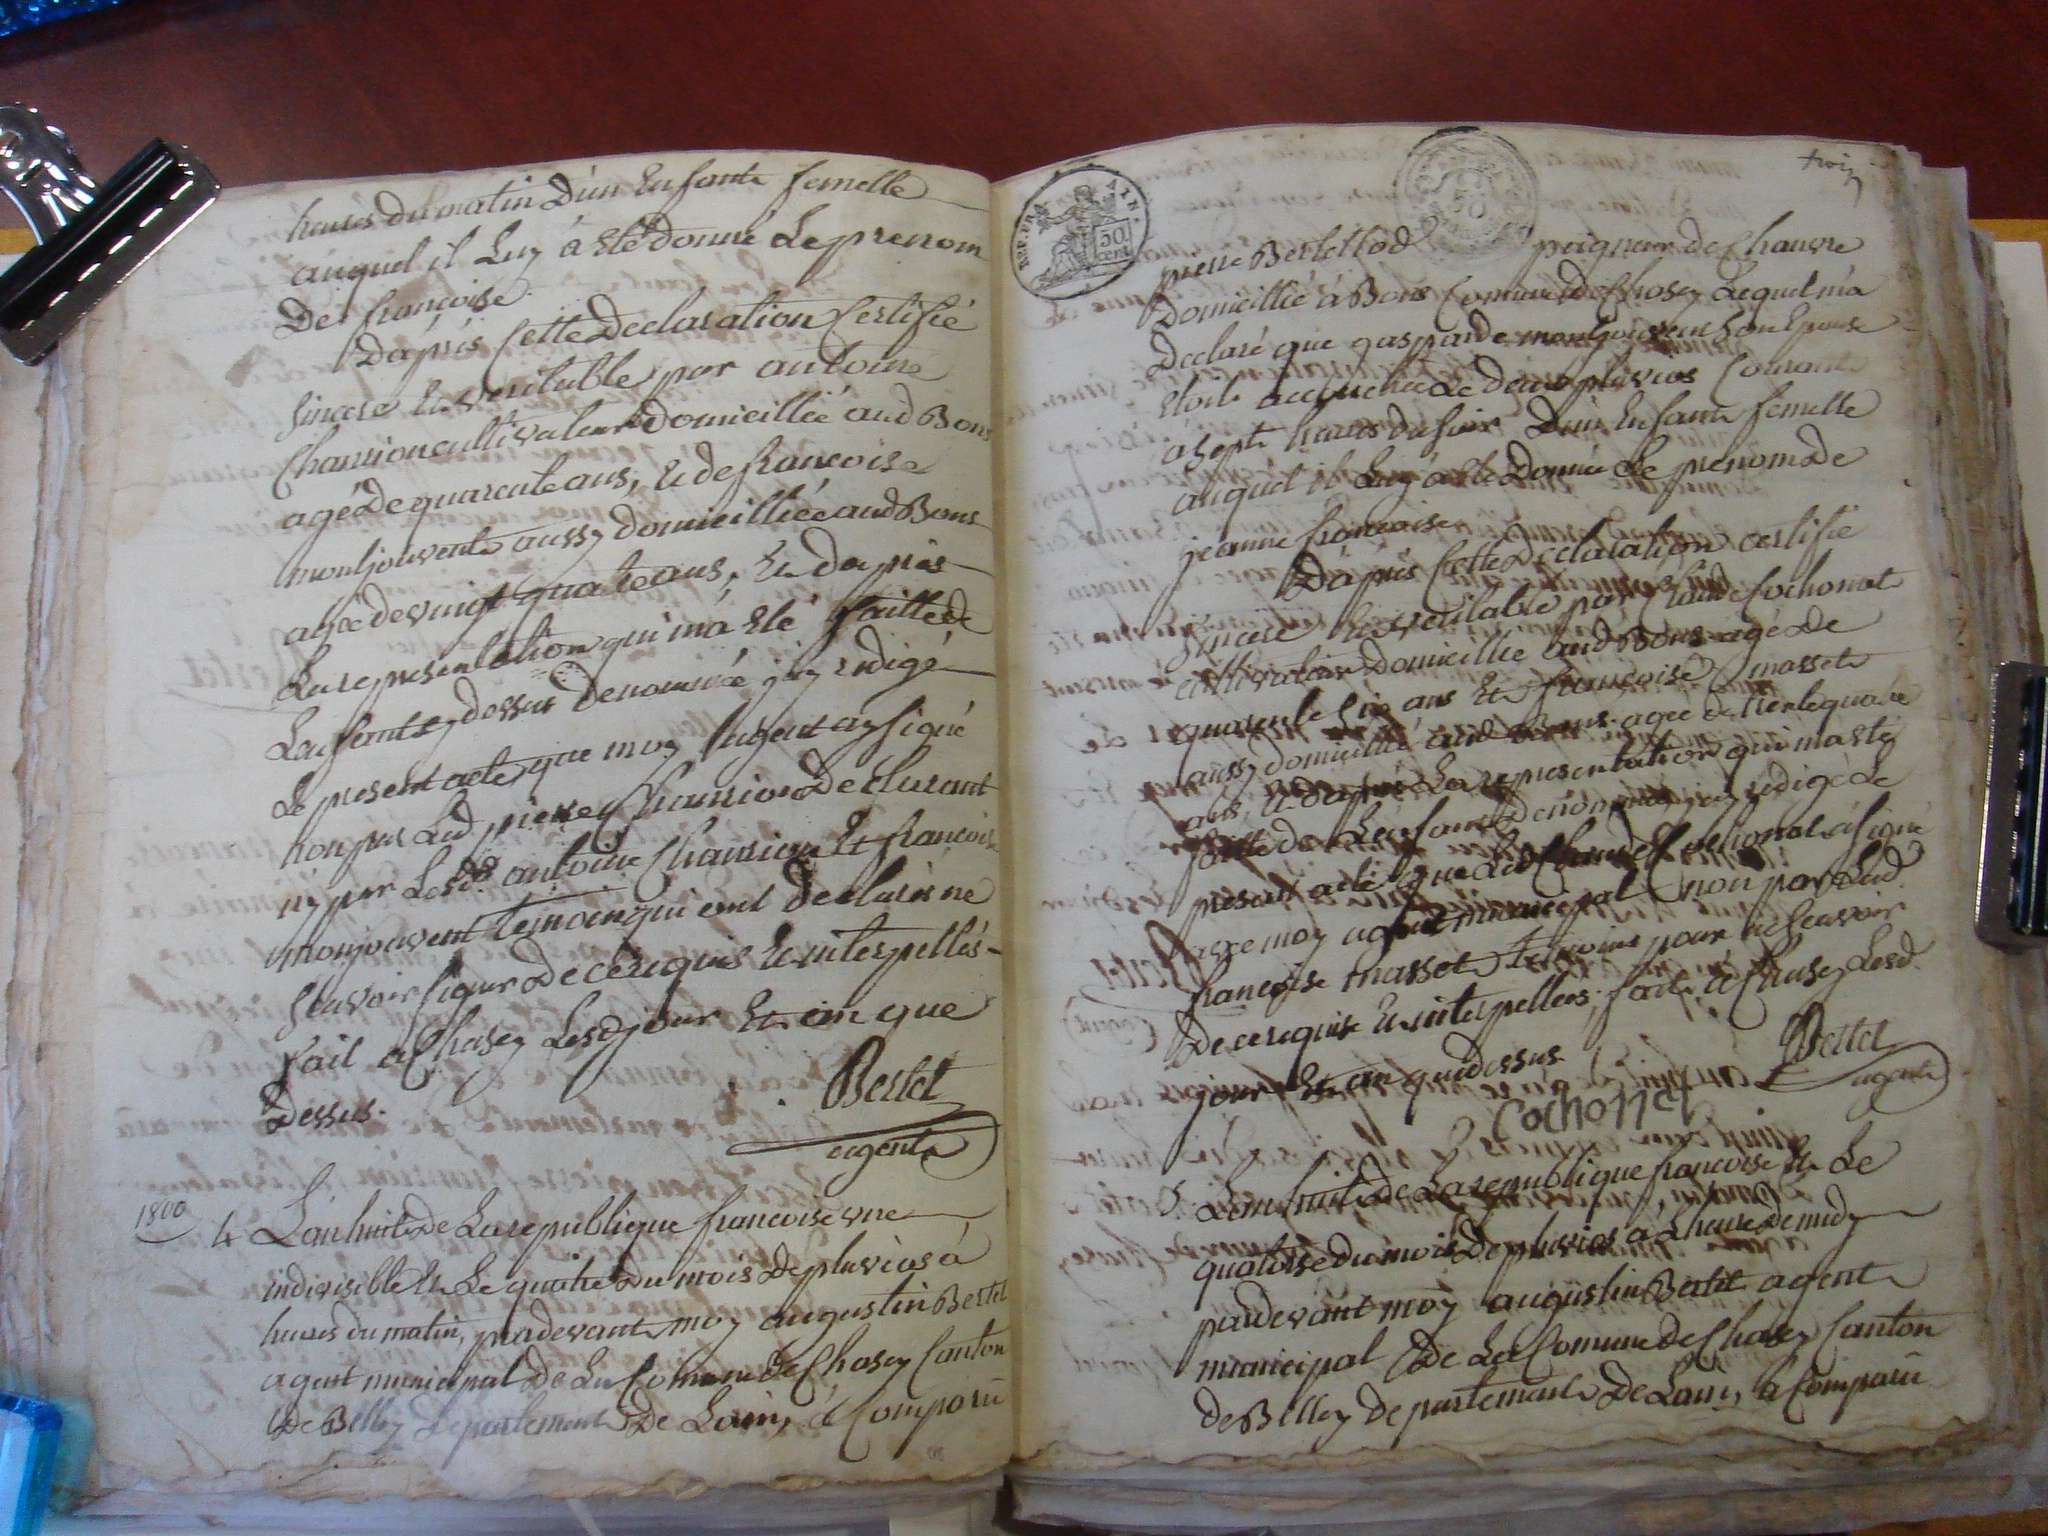 heures du matin D'un Enfant femelle
auquel il Luy á Eté donné Le prenom
De francoise
D'aprés Cette Declaration Certifié
Sincere Et veritable par antoine
Chanrion cultivateur Domicillié aud Bons
agé De quarente ans, Et de francoise
montjouvent aussy domicilliée aud Bons
agée de vingt quatre ans, Et d'aprés
La representation qui m'á Eté faitte de
L'enfant cy dessus denommée j'ay redigé
Le present acte que moy agent ay signé
non par Led pierre Chanrion Declarant
ny par Lesd. antoine Chanrion Et francoise
monjouvent temoin qui ont Declarés ne
Scavoir signer De ce requis Et interpellés
fait á Chasey Lesd jour Et an que
Dessus.
Bertet
agent
1800
4 L'an huit De La republique francoise une
indivisible Et Le quatre du mois De pluvios á
heures du matin, pardevant moy augustin Bertet
agent municipal De La Comune De Chasey Canton
De Belley Departement De Lain, á Comparu
trois
REP. FRA
AIN.
50
cent
50
pierre Bertellod peigneur de Chanvre
Domicillié á Bons Comune De Chasey Lequel m'á
Declaré que gasparde montjouvent Son Epouse
Etoit accouchée Le deux pluvios Courant
a Sept heures du soir D'un Enfant femelle
auquel il Luy á Eté Donné Le prenom De
jeanne francoise
D'aprés Cette Declaration certifié
Sincere Et veritable par Claude Cochonat
cultivateur Domicillié aud Bons agé De
quarente Six ans Et francoise masset
aussy domicillié aud Bons agée de trente quatre
ans, Et d'aprés La representation qui m'a eté
faitte de L'enfant denommée j'ay redigé Le
present acte que Led Claude Cochonat á signé
avec moy agent municipal non par Lad
francoise masset temoins pour ne Scavoir
De ce requise Et interpellées, fait á Chasey Lesd
jour Et an que dessus
Bertet
agent
Cochonet
5 L'an huit De La republique francoise Et Le
quatorse du mois De pluvios a L'heure De midy
pardevant moy augustin Bertet agent
municipal De La Comune De Chasey Canton
De Belley Departement De Lain, á Comparu